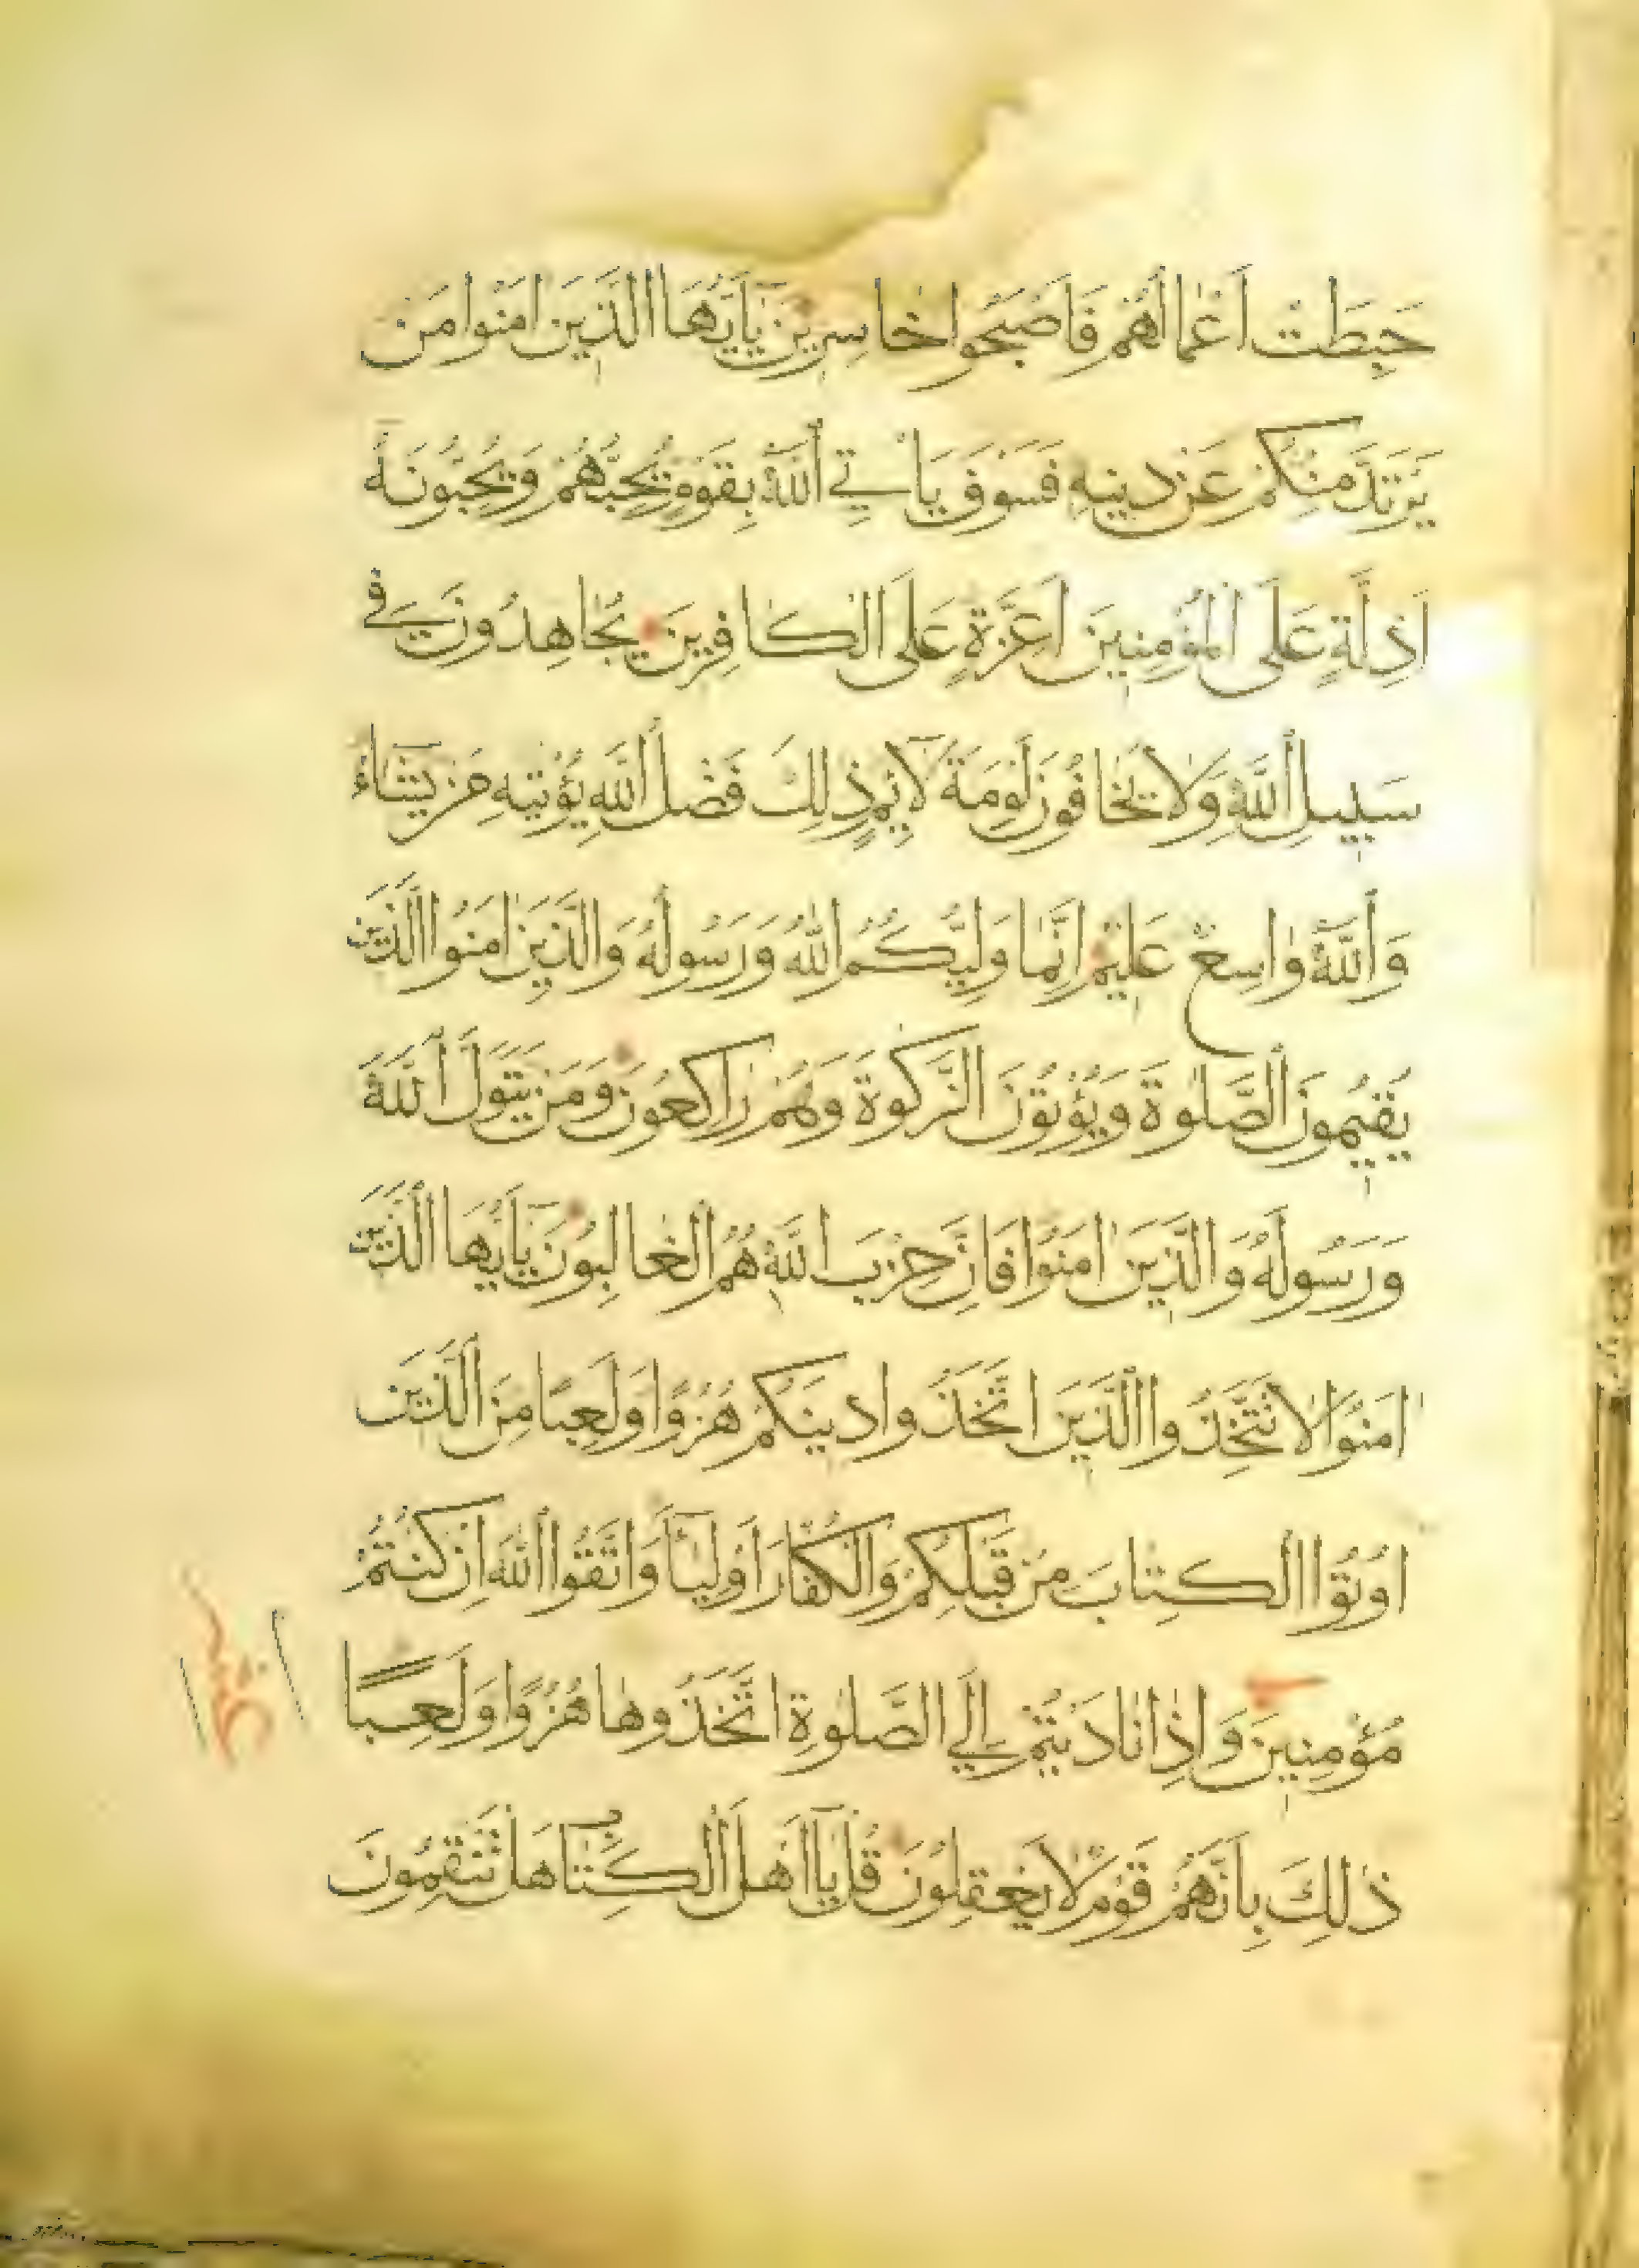 حَبِطَتْ اَعْمَالُهُمْ فَاَصْبَحُوا خَاسِرِيْنَ يٰٓاَيُّهَا الَّذِيْنَ اٰمَنُوا مَنْ
يَرْتَدَّ مِنْكُمْ عَنْ دِينِهِ فَسَوْفَ يَاْتِي اللّٰهُ بِقَوْمٍ يُحِبُّهُمْ وَيُحِبُّونَهُ
اَذِلَّةٍ عَلَى الْمُؤْمِنِينَ اَعِزَّةٍ عَلَى الْكَافِرِينَ يُجَاهِدُونَ فِي
سَبِيلِ اللّٰهِ وَلَا يَخَافُونَ لَوْمَةَ لَآئِمٍ ذٰلِكَ فَضْلُ اللّٰهِ يُؤْتِيهِ مَنْ يَشَآءُ
وَاللّٰهُ وَاسِعٌ عَلِيْمٌ اِنَّمَا وَلِيُّكُمُ اللّٰهُ وَرَسُولُهُ وَالَّذِيْنَ اٰمَنُوا الَّذِيْنَ
يُقِيْمُونَ الصَّلٰوةَ وَيُؤْتُوْنَ الزَّكٰوةَ وَهُمْ رَاكِعُوْنَ وَمَنْ يَتَوَلَّ اللّٰهَ
وَرَسُوْلَهُ وَالَّذِيْنَ اٰمَنُوْا فَاِنَّ حِزْبَ اللّٰهِ هُمُ الْغَالِبُوْنَ يٰٓاَيُّهَا الَّذِيْنَ
اٰمَنُوْا لَا تَتَّخِذُوا الَّذِيْنَ اتَّخَذُوا دِينَكُمْ هُزُوًا وَلَعِبًا مِنَ الَّذِيْنَ
اُوْتُوْا الْكِتَابَ مِنْ قَبْلِكُمْ وَالْكُفَّارَ اَوْلِيَآءَ وَاتَّقُوا اللّٰهَ اِنْ كُنْتُمْ
مُؤْمِنِيْنَ وَاِذَا نَادَيْتُمْ اِلَى الصَّلٰوةِ اتَّخَذُوهَا هُزُوًا وَلَعِبًا
ذٰلِكَ بِاَنَّهُمْ قَوْمٌ لَا يَعْقِلُوْنَ قُلْ يَآ اَهْلَ الْكِتٰبِ هَلْ تَنْقِمُونَ